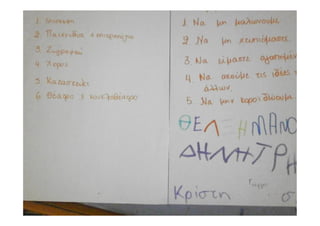 1. Μουσική
2. Παιχνίδια επιτραπέζια
3. Ζωγραφική
4. Χορός
5. Κατασκευές
6. Θέατρο κουκλοθέατρο
1. Να μη μαλώνουμε.
2. Να μη χτυπιόμαστε.
3. Να είμαστε αγαπημένοι
4. Να ακούμε τις ιδέες
άλλων.
5. Να μην κοροϊδεύουμε.
ΘΕΛΞΗ ΜΑΝΟ
ΔΗΜΗΤΡΗ
Κρίστη